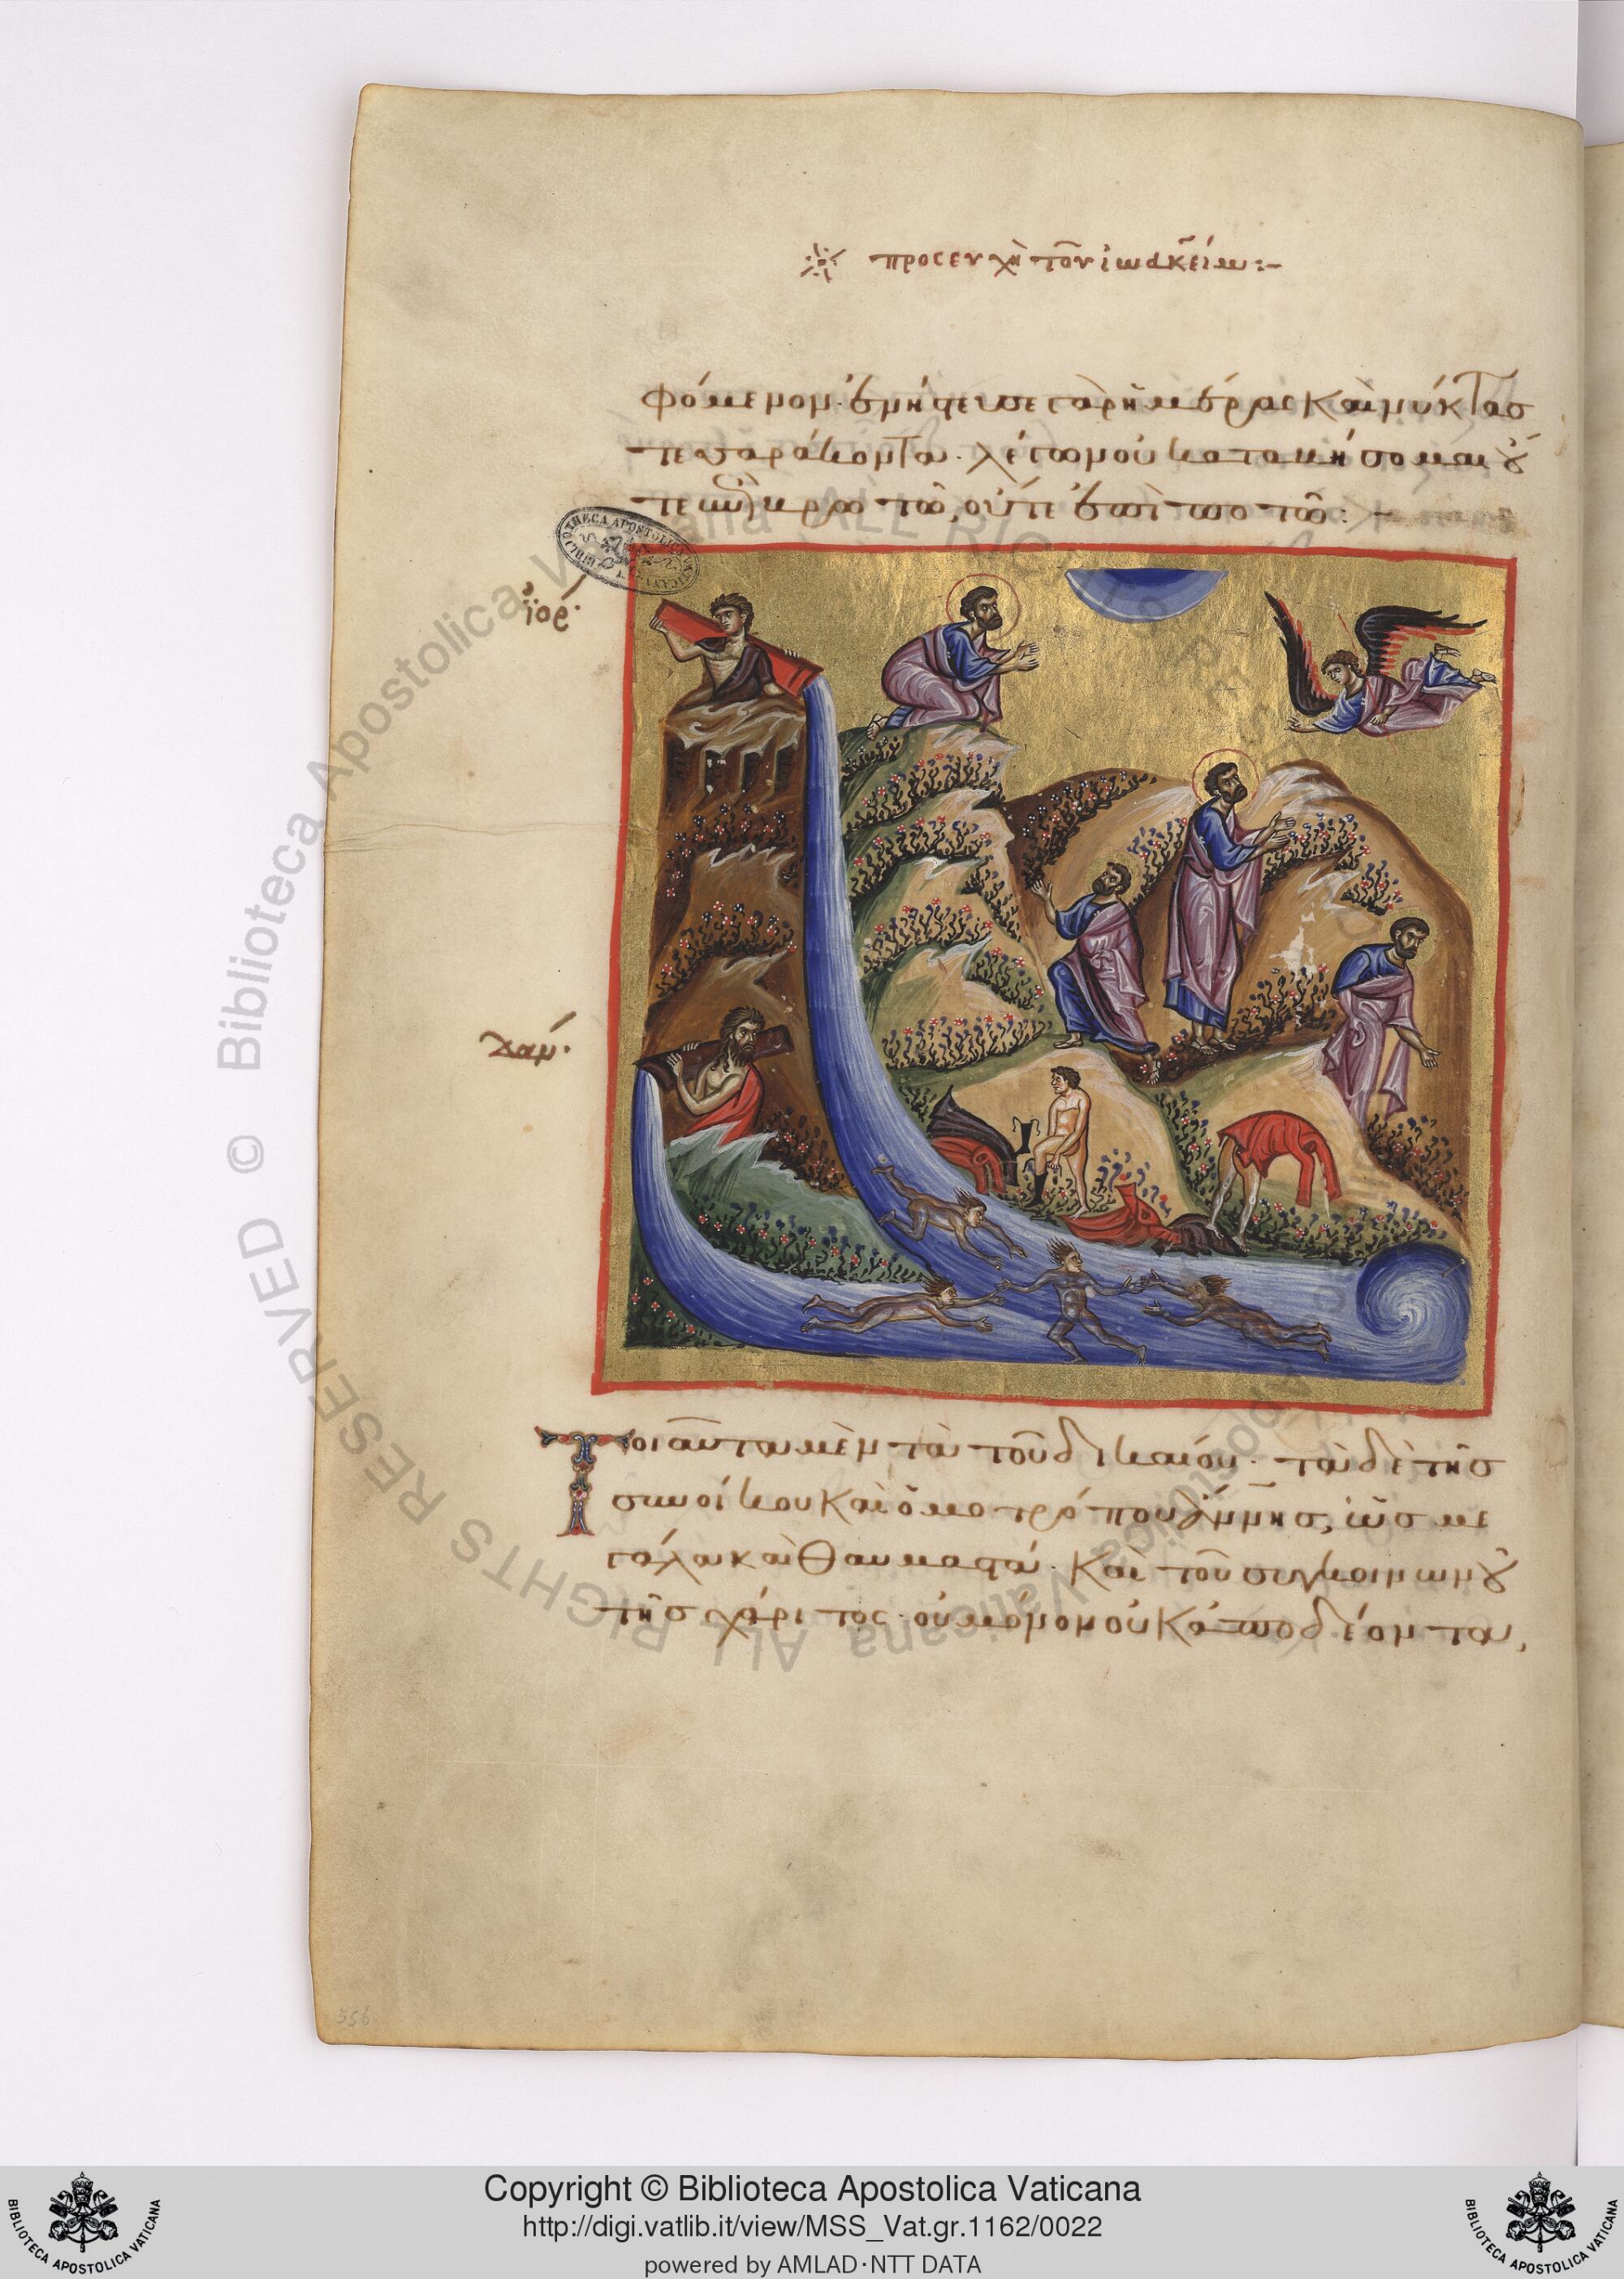 προσευχὴ τοῦ ἰωακείμ:-
φόμενον. ἐν ἡ
τεσσαράκοντα. λέγων οὐ καταβήσομαι οὔ
τε ἐπὶ βρωτὸν, οὔτε ἐπὶ ποτόν:-
ἰορ.
δαν.
Τοιαῦτα μὲν τὰ τοῦ δικαίου. τὰ δὲ τῆς
συνοίκου καὶ ὁμοτρόπου ἄννης, ὡς με
γάλα καὶ θαυμαστά. καὶ τοῦ συγκοινωνοῦ
τῆς χάριτος οὐ μόνον οὐκ ἀποδέοντα,
356
© Biblioteca Apostolica Vaticana ALL RIGHTS RESERVED
Copyright © Biblioteca Apostolica Vaticana
http://digi.vatlib.it/view/MSS_Vat.gr.1162/0022
powered by AMLAD·NTT DATA
BIBLIOTECA APOSTOLICA VATICANA
BIBLIOTECA APOSTOLICA VATICANA